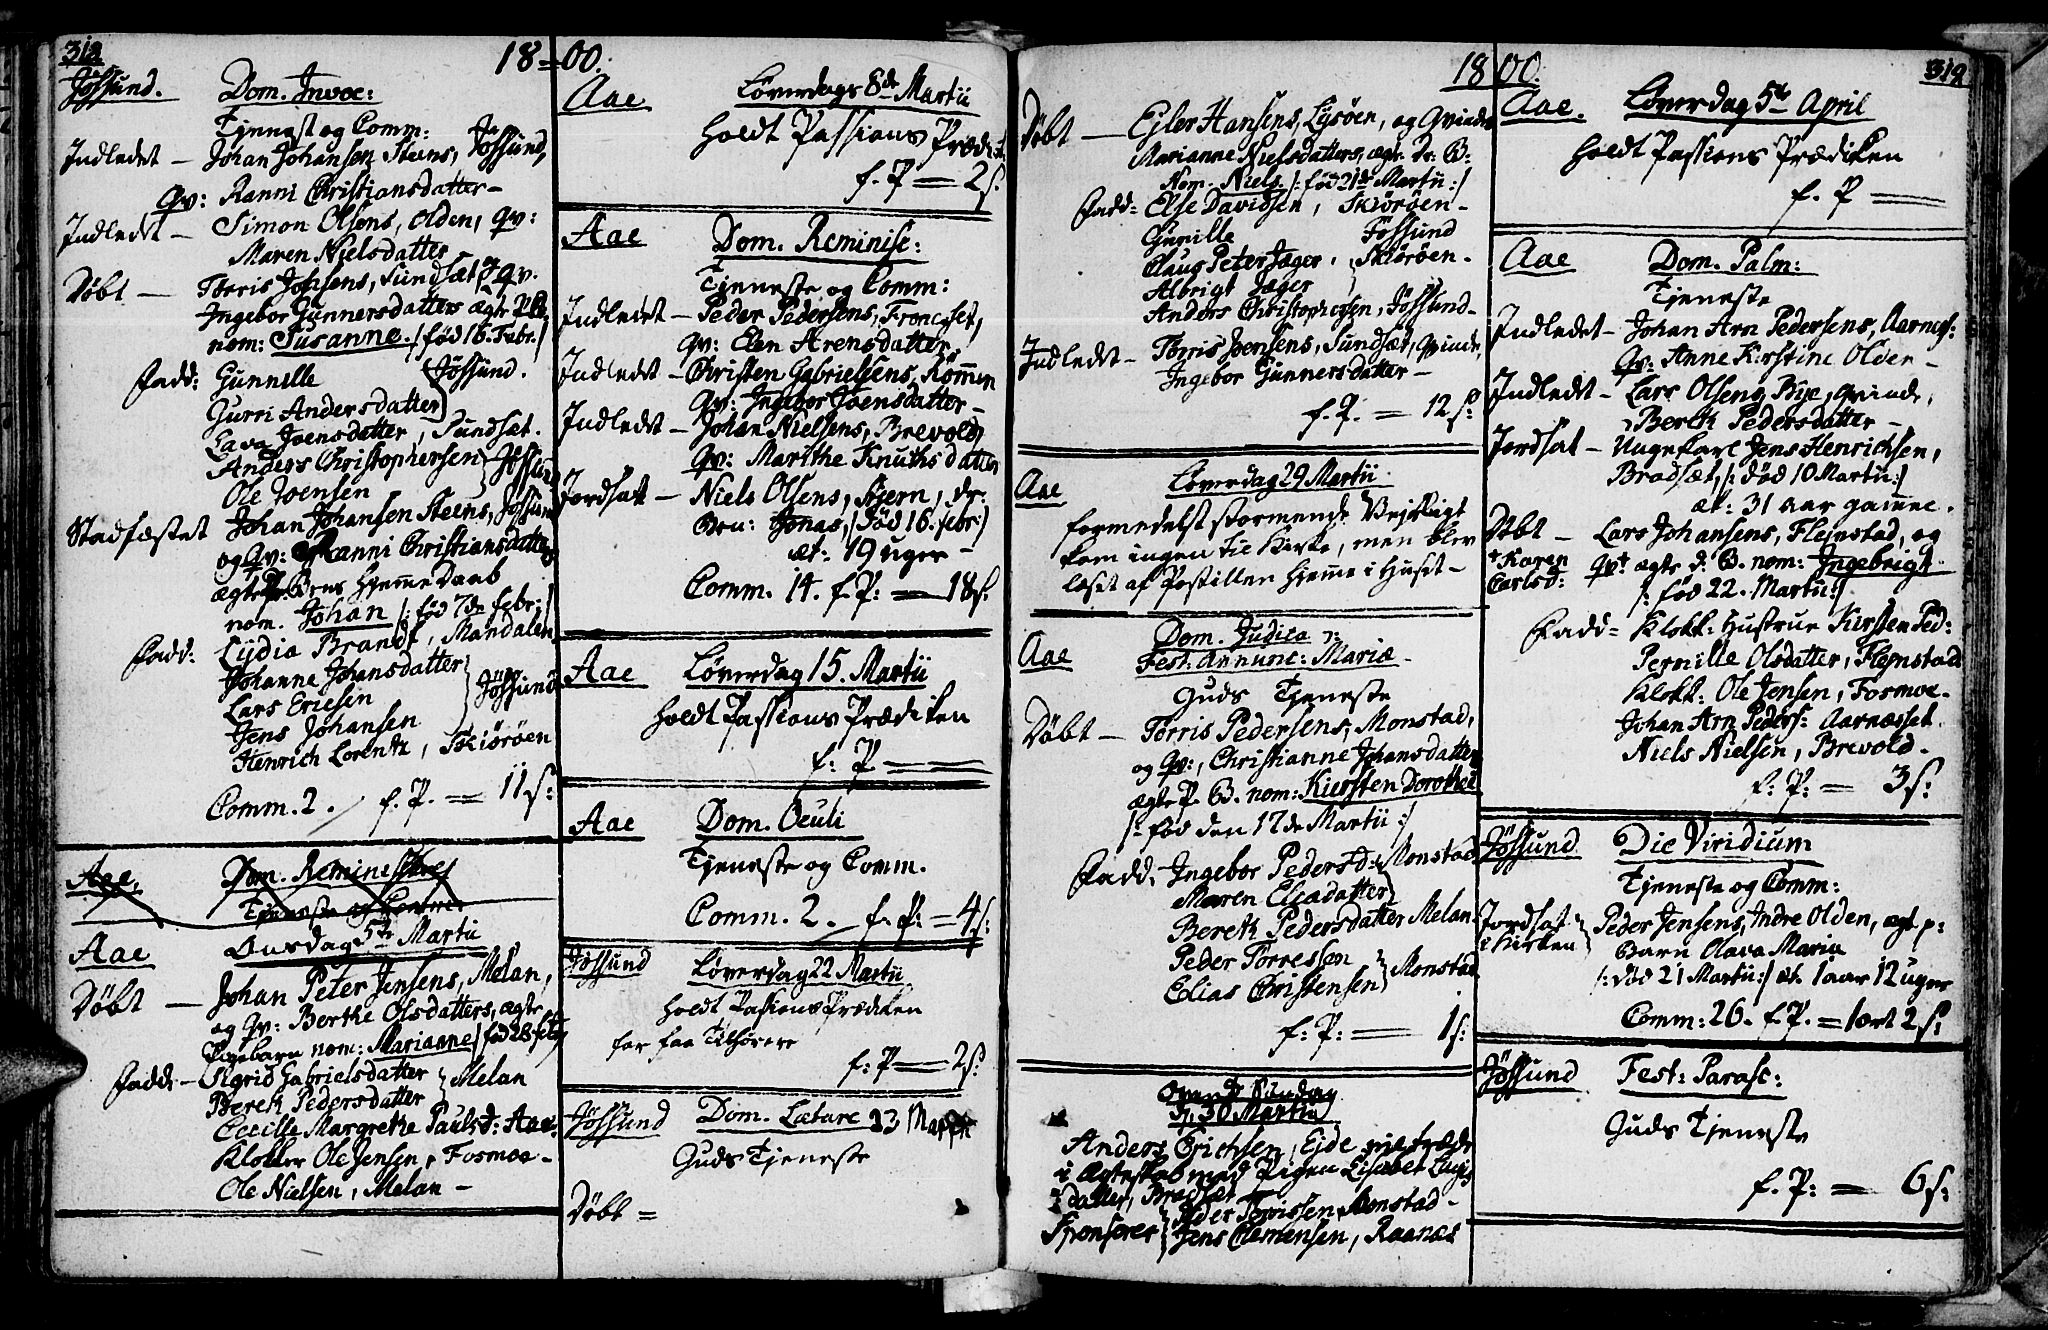 312
18=00.
Jøssund. Dom. Invoc:
Tjenest og Comm:
Indledet – Johan Johansen Steens, Jøssund,
Qv: Ranni Christiansdatter –
Indledt – Simon Olsens, Olden, qv:
Maren Nielsdatter
Døbt – Torris Johsens, Sundsæt og qv.
Ingebor Gunnersdatters ægte P. B.
nom: Susanne. /: fød 16. Febr: /
Fadd: Gunnille
Jøssund.
Gurri Andersdatter
Lava Joensdatter, Sundsæt.
Anders Christophersen
Jøssund
Ole Joensen
Stadfæstet Johan Johansen Steens, Jøssund
og Qv: Ranni Christiansdatters
ægte Dr. Barns Hjemme Daab
nom. Johan /: fød 7de febr: /
Fadd: Lydia Brandt, Mandalen
Johanne Johansdatter
Lars Ericsen
Jøssund
Jens Johansen
Henrich Lorentz, Skiörøen
Comm. 2. f. P. = 11 s:
Aae. Dom. Reminiscere
Tjeneste og Comm:
Aae Onsdag 5te Martii
Døbt – Johan Peter Jensens, Melan,
og Qv: Berthe Olsdatters, ægte
Pigebarn nom: Marianne / fød 28 feb:
Fadd – Sigrid Gabrielsdatter
Melan
Bereth Pedersdatter
Cecille Margrethe Pauls D: Aae.
Klokker Ole Jensen, Fosmoe –
Ole Nielsen, Melan –
Aae Løverdags 8de Martii
holdt Passions Prædik:
f. P = 2 s:
Aae Dom. Reminisc:
Tjeneste og Comm:
Indledet – Peder Pedersens, Froncset,
Qv: Elen Arensdatter
Indledet – Christen Gabrielsens, Kömmen
Qv: Ingebor Joensdatter –
Indledt – Johan Nielsens, Brevold
Qv: Marithe Knuthsdatter
Jordsat – Niels Olsens, Stjern, dr:
Barn: Jonas, / død 16. febr: /
æt: 19 uger –
Comm. 14. f. P: = 18 s:
Aae Løverdag 15. Martii
holdt Passions Prædiken
f: P = –
Aae Dom. Oculi
Tjeneste og Comm.
Comm. 2. f. P: = 4 s:
Jøssund Løverdag 22 Martii
holdt Passions Prædiken
for faa Tilhørere
f: P = 2 s:
Jøssund Dom. Lætare 23 Martii
Guds Tjeneste
Døbt =
18 00.
312
Døbt – Ejler Hansens, Lysöen, og Qvinde
Marianne Nielsdatters, ægte Dr: B:
Nom. Niels. /: fød 21de Martii: /
Fadd: Else Davidsen, Skiöröen –
Gunille Jössund
Claus Peter Jæger, Skiöröen –
Albrigt Jæger
Anders Christophersen, Jössund –
Indledet – Torris Joensens, Sundsæt, Qvinde,
Ingebor Gunnersdatter –
f. P. = 12 s:
Aae Løverdag 29 Martii
formedelst stormende Vejrligt
kom ingen til Kirke, men blev
læset af Postillen hjemme i Huset –
Aae Dom. Judica ɔ:
Fest: Annunc: Mariæ –
Guds Tjeneste
Døbt – Torris Pedersens, Monstad,
og Qv:, Christianne Johansdatter
ægte P. B. nom: Kiersten Dorothea
/: fød den 17de Martii: /
Fadd: Ingebor Peders D: Monstad
Maren Eliadatter
Bereth Pedersdatter Melan
Peder Torressen
Monstad
Elias Christensen
f: P: = 1 s:
30 Martii
Anders Erichsen, Eide, indtræde
i Ægteskab med Pigen Lisabet
datter, Bradsæt
Peder Torrissen, Monstad –
Sponsorer Jens Clemensen, Raanæs
Aae. Løverdag 5te April
holdt Passions Prædiken
f. P =
Aae Dom. Palm:
Tjeneste
Indledet – Johan Arn Pedersens, Aarness:
Qv: Anne Kirstine Older –
Indledet – Lars Olsens, Bye, Qvinde,
Bereth Pedersdatter –
Jordsat – Ungekarl Jens Henrichsen,
Bradsæt, /: død 10 Martii: /
æt: 31 aar gamme.
Døbt – Lars Johansens, Flejnstad, og
+ Karen Carlsd: qv+ ægte d: B. nom: Ingebrigt.
/: fød 22. Martii: /
Fadd = Klokk: Hustrue Kirsten Ped:
Pernille Olsdatter, Flejnstad
Klokk: Ole Jensen, Fosmoe –
Johan Arn Peders: Aarnæsset.
Niels Nielsen, Brevold –
f: P: = 3 s:
Jøssund Die Viridium
Tjeneste og Comm:
Jordsat i Kirken Peder Jensens, Indre Olden, ægt p:
Barn Olava Maria
/: død 21 Martii: / æt. 1 aar 12 uger
Comm: 26. f. P. = 1 ort 2 s:
Jøssund Fest: Parasc:
Guds Tjeneste
f. P: = 6 s: